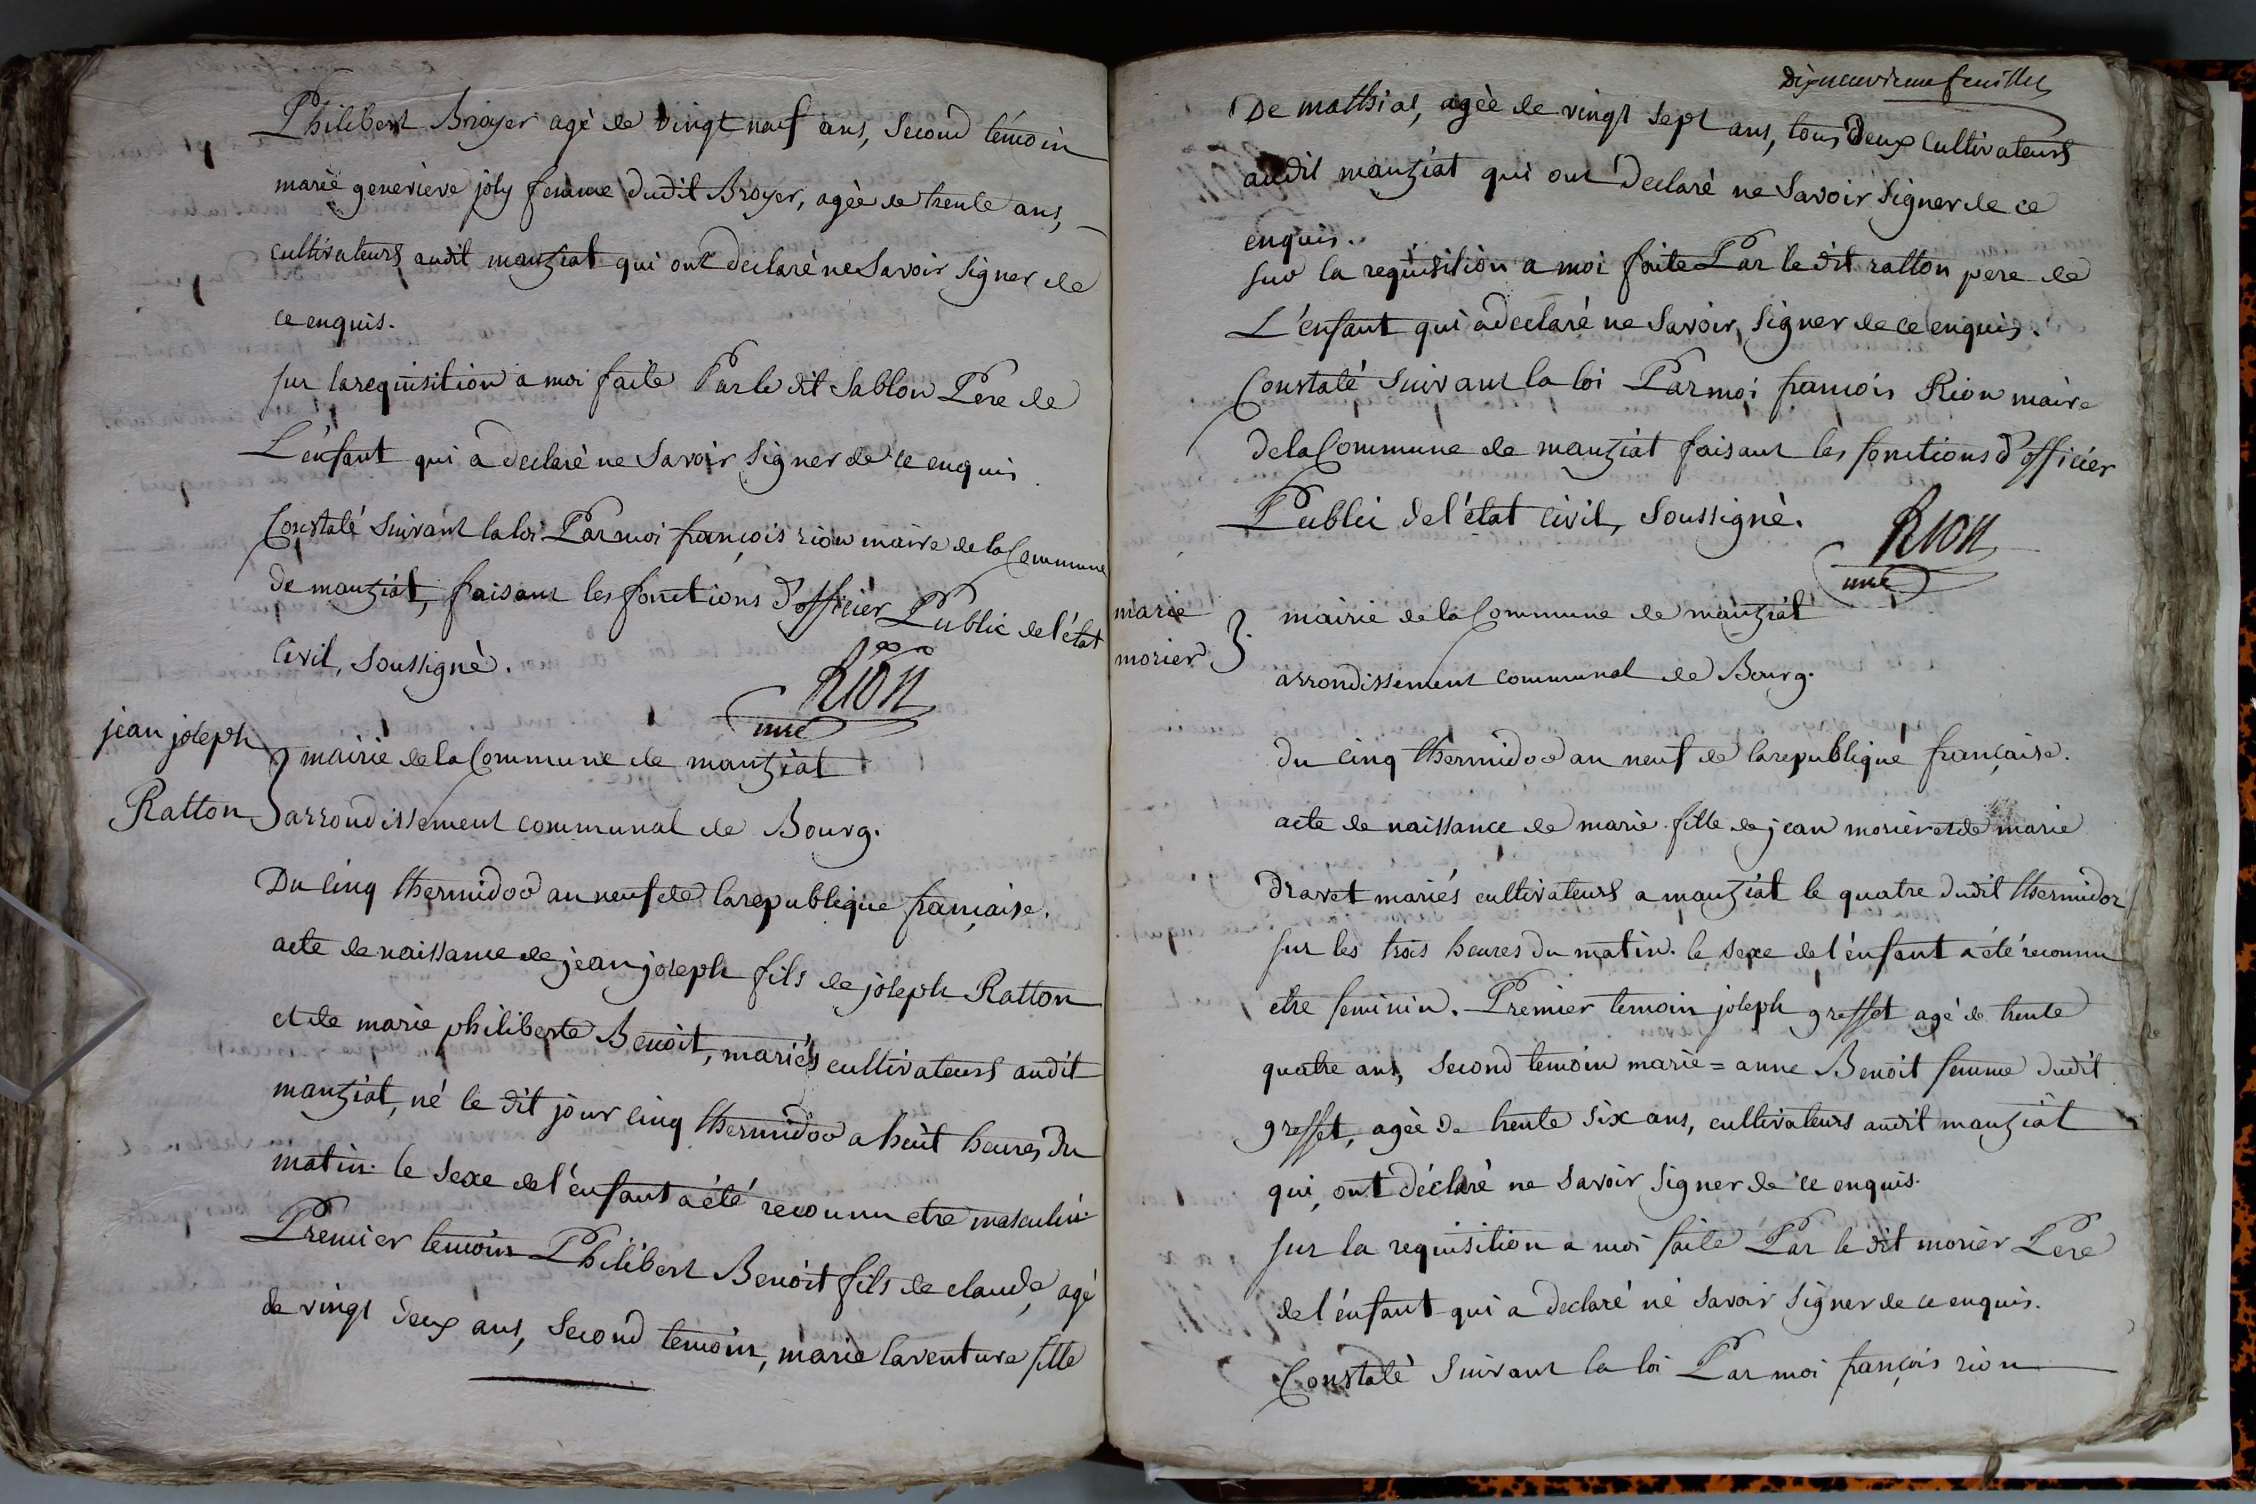 Philibert Broyer agé de vingt neuf ans, second témoin
marie genevieve joly femme dudit Broyer, agèe de trente ans,
cultivateurs audit manziat qui ont declaré ne savoir signer de
ce enquis.
sur la requisition a moi faite Par le dit Sablon Pere de
L'enfant qui a declaré ne savoir signer de ce enquis
Constaté suivant la loi Par moi françois rion maire de la Commune
de manziat, faisant les fonctions d'officier Public de l'état
Civil, soussigné.
Rion
mre
jean joseph
Ratton
mairie de la Commune de manziat
arrondissement communal de Bourg.
Du cinq thermidor an neuf de la republique française.
acte de naissance de jean joseph fils de joseph Ratton
et de marie philiberte Benoit, mariés cultivateurs audit
manziat, né le dit jour cinq thermidor a heuit heures du
matin. le sexe de l'énfant a été reconnu etre masculin.
Premier temoin Philibert Benoit fils de claude, agé
de vingt deux ans, second temoin, marie laventure fille
Dixneuvieme feuillet
De mathias, agèe de vingt sept ans, tous deux cultivateurs
audit manziat qui ont declaré ne savoir signer de ce
enquis.
sur la requisition a moi faite Par le dit ratton pere de
L'enfant qui a declaré ne savoir signer de ce enquis.
Constaté suivant la loi Par moi françois Rion maire
de la Commune de manziat faisant les fonctions d'officier
Public de l'état civil, soussigné.
Rion
mre
marie
morier
mairie de la Commune de manziat
arrondissement communal de Bourg.
du cinq thermidor an neuf de la republique française.
acte de naissance de marie fille de jean morier et de marie
dravet mariés cultivateurs a manziat le quatre dudit thermidor
sur les trois heures du matin. le sexe de l'énfant a été reconnu
etre feminin. Premier temoin joseph greffet agé de trente
quatre ans, second temoin marie=anne Benoit femme dudit
greffet, agèe de trente six ans, cultivateurs audit manziat
qui ont déclaré ne savoir signer de ce enquis.
sur la requisition a moi faite Par le dit morier Pere
de l'énfant qui a declaré ne savoir signer de ce enquis.
Constaté suivant la loi Par moi françois rion